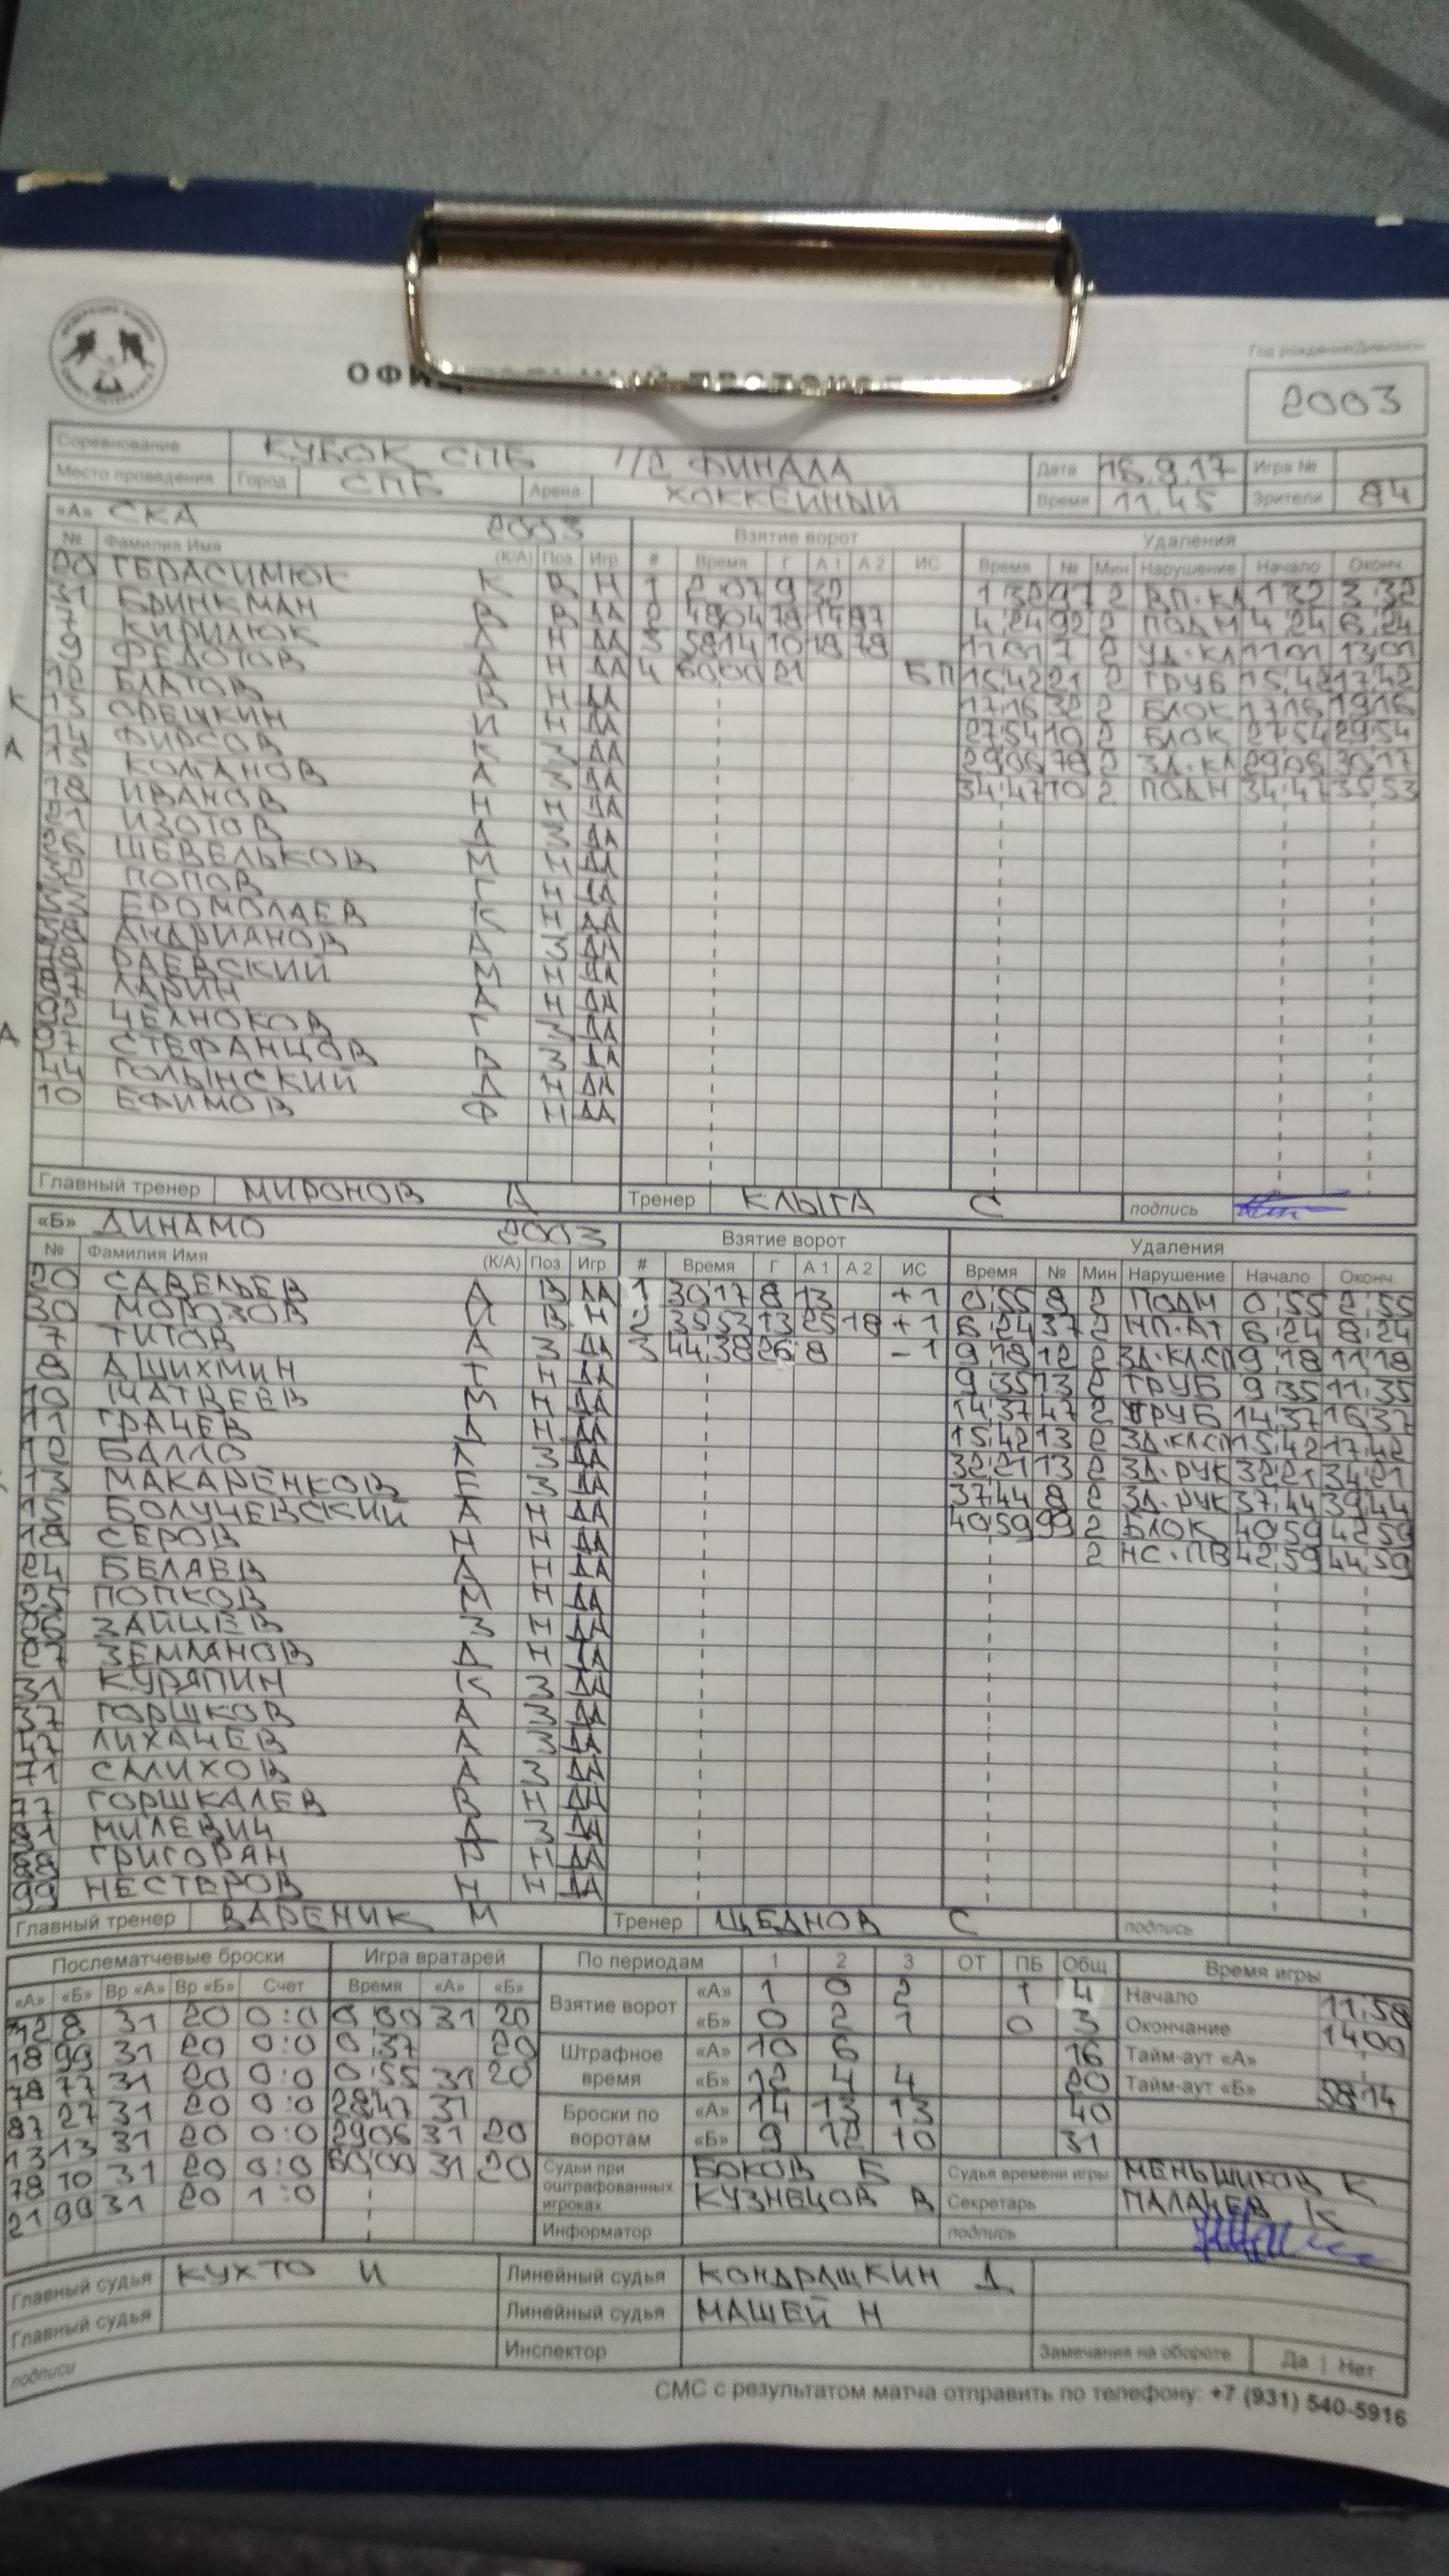 2003
Соревнование КУБОК СПБ 1/2 ФИНАЛА Дата 16.9.17 Игра №
Место проведения Город СПБ Арена ХОККЕЙНЫЙ Время 11.45 Зрители 84
«А» СКА 2003 Взятие ворот Удаления
№ Фамилия Имя (К/А) Поз. Игр. # Время Г А 1 А 2 ИС Время № Мин Нарушение Начало Оконч.
ГЕРАСИМЮК К В Н 1 2 07 9 32 1 32 97 2 ВП.КЛ 1 32 3 32
31 БРИНКМАН В В ДА 2 48 04 78 14 97 4 24 92 2 ПОДН 4 24 6 24
7 КИРИЛЮК Д Н ДА 3 58 14 10 18 78 11 01 7 2 УД.КЛ 11 01 13 01
9 ФЕДОТОВ Д Н ДА 4 60 00 21 БП 15 42 21 2 ГРУБ 15 42 17 42
К БЛАТОВ В Н ДА 17 16 32 2 БЛОК 17 16 19 16
13 ОРЕШКИН И Н ДА 27 54 10 2 БЛОК 27 54 29 54
А 14 ФИРСОВ К З ДА 29 06 78 2 ЗД.КЛ 29 06 30 17
15 КОЛГАНОВ А З ДА 34 47 10 2 ПОДН 34 47 35 53
18 ИВАНОВ Н Н ДА
21 ИЗОТОВ Д З ДА
26 ШЕВЕЛЬКОВ М Н ДА
ПОПОВ Г Н ДА
ЕРОМОЛАЕВ К Н ДА
АНДРИАНОВ А З ДА
78 РАЕВСКИЙ М Н ДА
87 ЛАРИН А Н ДА
92 ЧЕЛНОКОВ Г З ДА
А 97 СТЕФАНЦОВ В З ДА
44 ГОЛЫНСКИЙ Д Н ДА
10 ЕФИМОВ Ф Н ДА
Главный тренер МИРОНОВ А Тренер КЛЫГА С подпись
«Б» ДИНАМО 2003 Взятие ворот Удаления
№ Фамилия Имя (К/А) Поз. Игр. # Время Г А 1 А 2 ИС Время № Мин Нарушение Начало Оконч.
20 САВЕЛЬЕВ А В ДА 1 30 17 8 13 +1 0 55 8 2 ПОДН 0 55 2 55
30 МОРОЗОВ И В Н 2 35 53 13 25 18 +1 6 24 37 2 НП.АТ 6 24 8 24
7 ТИТОВ А З ДА 3 44 38 26 8 -1 9 18 12 2 ЗД.КЛСП 9 18 11 18
8 АШИХМИН Т Н ДА 9 35 13 2 ГРУБ 9 35 11 35
10 МАТВЕЕВ М Н ДА 14 37 47 2 ГРУБ 14 37 16 37
11 ГРАЧЕВ Д Н ДА 15 42 13 2 ЗД.КЛСП 15 42 17 42
12 БАЛЛО К З ДА 32 21 13 2 ЗД.РУК 32 21 34 21
13 МАКАРЕНКОВ Е З ДА 37 44 8 2 ЗД.РУК 37 44 39 44
15 БОЛУЧЕВСКИЙ А Н ДА 40 59 99 2 БЛОК 40 59 42 59
18 СЕРОВ Н Н ДА 2 НС.ПВ 42 59 44 59
24 БЕЛЯЕВ А Н ДА
25 ПОПКОВ М Н ДА
26 ЗАЙЦЕВ З Н ДА
27 ЗЕМЛАНОВ Д Н ДА
31 КУРЯПИН К З ДА
37 ГОРШКОВ А З ДА
47 ЛИХАЧЕВ А З ДА
71 САЛИХОВ А З ДА
77 ГОРШКАЛЕВ В Н ДА
МИЛЕВИЧ Д З ДА
88 ГРИГОРЯН Р Н ДА
99 НЕСТЕРОВ Н Н ДА
Главный тренер ВАРЕНИК М Тренер ЩЕДНОВ С подпись
Послематчевые броски Игра вратарей По периодам 1 2 3 ОТ ПБ Общ Время игры
«А» «Б» Вр «А» Вр «Б» Счет Время «А» «Б» Взятие ворот «А» 1 0 2 1 4 Начало 11,58
8 31 20 0:0 0,00 31 20 «Б» 0 2 1 0 3 Окончание 14,00
18 99 31 20 0:0 0,37 20 Штрафное время «А» 10 6 16 Тайм-аут «А»
78 77 31 20 0:0 0:55 31 20 «Б» 12 4 4 20 Тайм-аут «Б» 58 14
87 27 31 20 0:0 28 47 31 Броски по воротам «А» 14 13 13 40
13 13 31 20 0:0 29 06 31 20 «Б» 9 12 10 31
78 10 31 20 0:0 60,00 31 20 Судьи при оштрафованных игроках БОКОВ Б Судья времени игры МЕНЬШИКОВ К
21 99 31 20 1:0 КУЗНЕЦОВ В Секретарь ПАЛАЧЕВ К
Информатор подпись
Главный судья КУХТО И Линейный судья КОНДРАШКИН Д
Главный судья Линейный судья МАШЕЙ Н
подписи Инспектор Замечания на обороте Да | Нет
СМС с результатом матча отправить по телефону: +7 (931) 540-5916